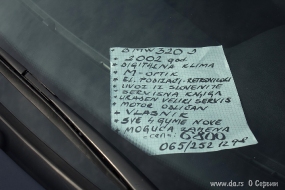 BMW 320 d
* 2002 god.
* DIGITALNA KLIMA
* M-OPTIK
* EL. PODIZAČI - RETROVIZORI
* UVOZ IZ SLOVENIJE
* SERVISNA KNJIGA
* URAĐEN VELIKI SERVIS
* MOTOR ODLIČAN
* VLASNIK
* SVE 4 GUME NOVE
* MOGUĆA ZAMENA
cena:
065/252
www.da.rs О Сербии